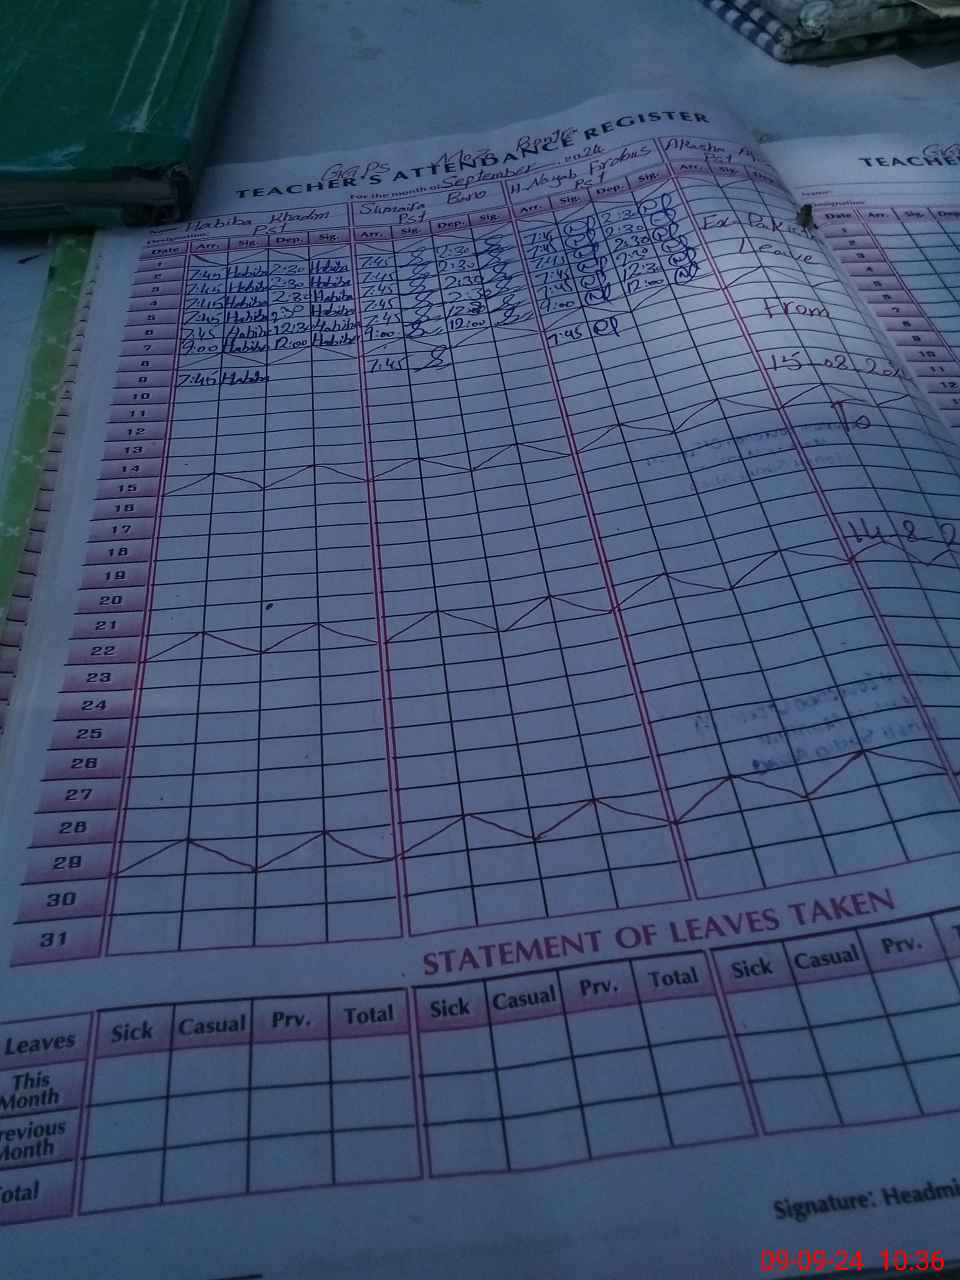 GGPS
TEACHER'S ATTENDANCE REGISTER
TEACHE
For the month of September 2024
Name Habiba Khadim
Sumaira Bano
H. Nayab Firdous
Designation PST PST PST PST
Date Arr. Sig. Dep. Sig. Arr. Sig. Dep. Sig. Arr. Sig. Dep. Sig. Arr. Sig.
Date Arr. Sig. Dep
2 7:45 Habiba 2:30 Habiba 7:45 2:30 7:45 2:30
3 7:45 Habiba 2:30 Habiba 7:45 2:30 7:45 2:30
4 7:45 Habiba 2:30 Habiba 7:45 2:30 7:45 2:30
5 7:45 Habiba Habiba 7:45 7:45
6 7:45 Habiba 12:30 Habiba 7:45 12:30 7:45 12:30
7 9:00 Habiba 12:00 Habiba 9:00 12:00 9:00 12:00
8
9 7:45 Habiba 7:45 7:45
Ex-Pakistan
Leave
From
15-08-20
To
14-8-2
10
11
12
13
14
15
16
17
18
19
20
21
22
23
24
25
26
27
28
29
30
31
STATEMENT OF LEAVES TAKEN
Leaves Sick Casual Prv. Total Sick Casual Prv. Total Sick Casual Prv.
This Month
revious Month
otal
Signature: Headmi
09-09-24 10:36